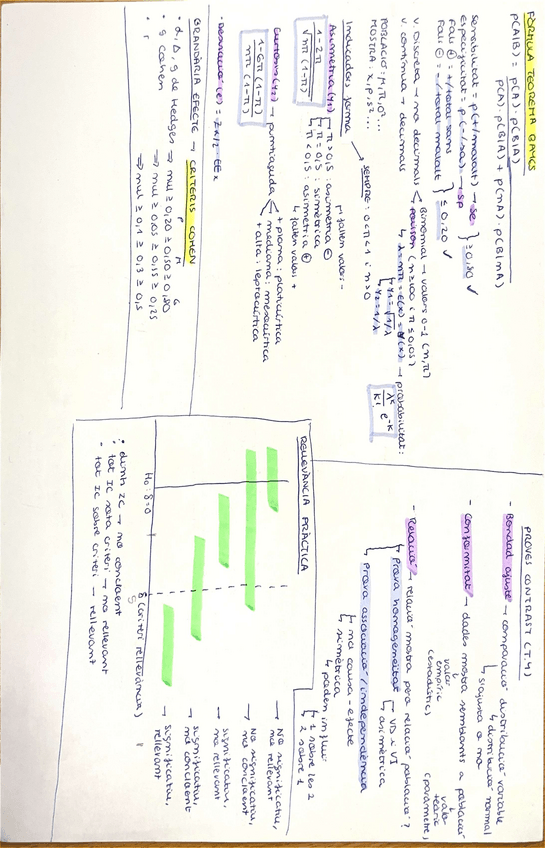 FÓRMULA TEOREMA BAYES
p(A|B) = p(A) · p(B|A)
p(A) · p(B|A) + p(nA) · p(B|nA)
sensibilitat = p(+/malalt) → se
especificitat = p(-/sa) → sp
≥ 0,80 ✓
Fals ⊕ = +/total sans
Fals ⊖ = -/total malalts
≤ 0,20 ✓
v. discreta → no decimals
v. contínua → decimals
Binomial → valors 0-1 (n, π)
Poisson (n ≥ 100 i π ≤ 0,05)
↳ λ = nπ = E(x) = V(x) → probabilitat:
λᵏ
k! e⁻ᵏ
↳ γ1 = √1/λ
↳ γ2 = 1/λ
POBLACIÓ: μ, π, σ²...
MOSTRA: x, p, s²...
SEMPRE: 0 < π < 1 i n > 0
Indicadors forma
Asimetria (γ1)
1 - 2π
√nπ (1-π)
π > 0,5: asimetria ⊖
↱ falten valors -
π = 0,5: simètrica
π < 0,5: asimetria ⊕
↳ falten valors +
Curtosis (γ2) → punxiaguda
1 - 6π (1-π)
nπ (1-π)
+ plana: platicúrtica
mediana: mesocúrtica
+ alta: leptocúrtica
GRANDÀRIA EFECTE → CRITERIS COHEN
P M G
· d, Δ, g de Hedges ⇒ nul ≥ 0,20 ≥ 0,50 ≥ 0,80
· g Cohen ⇒ nul ≥ 0,05 ≥ 0,15 ≥ 0,25
· r ⇒ nul ≥ 0,1 ≥ 0,3 ≥ 0,5
PROVES CONTRAST (T.4)
- Bondad ajuste → comparació distribució variable
↳ distribució normal
↳ s'ajusta o no
- Conformitat → dades mostra semblants a població
valor empíric (estadístic)
valor teòric (paràmetre)
- Relació → relació mostra però relació població?
↳ Prova homogeneïtat → VD i VI
↳ asimètrica
↳ Prova associació / independència
↳ no causa-efecte
↳ simètrica
↳ poden influir
↳ 1 sobre les 2
↳ 2 sobre 1
RELLEVÀNCIA PRÀCTICA
→ No significatiu, no rellevant
→ No significatiu, no concloent
→ significatiu, no rellevant
→ significatiu, no concloent
→ significatiu, rellevant
H0: δ = 0
δ (criteri rellevància)
· dins IC → no concloent
· tot IC sota criteri → no rellevant
· tot IC sobre criteri → rellevant